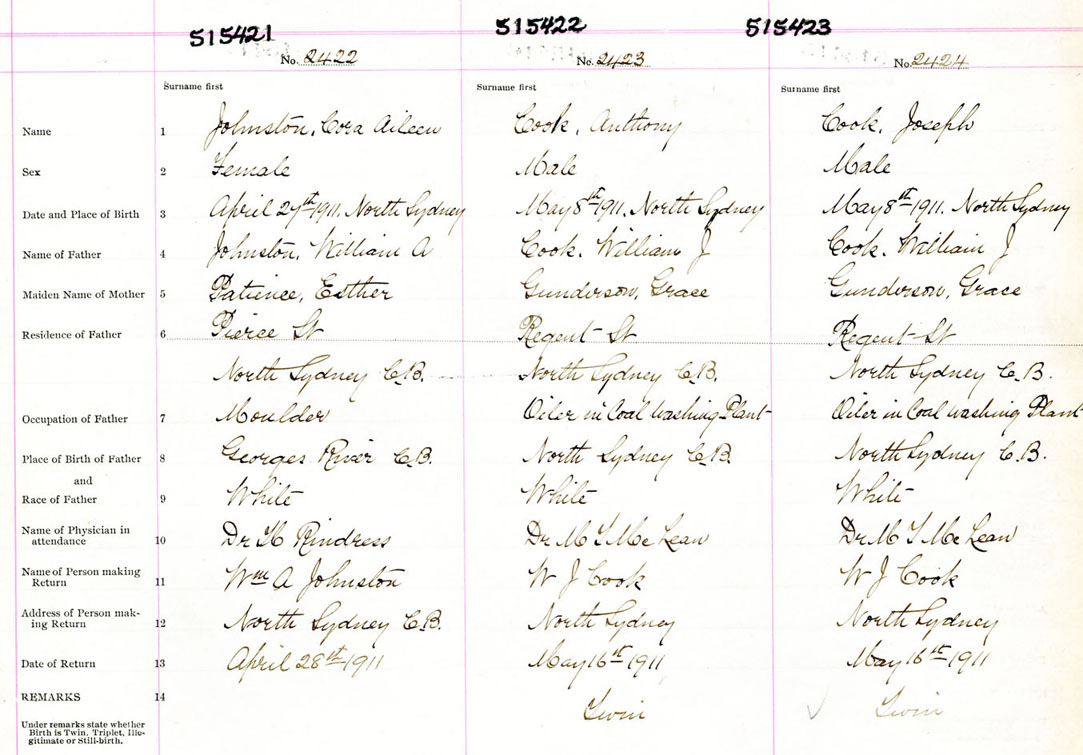 515421 515422 515423
No. 2422 No. 2423 No. 2424
Surname first Surname first Surname first
Name 1 Johnston, Cora Aileen Cook, Anthony Cook, Joseph
Sex 2 Female Male Male
Date and Place of Birth 3 April 27th 1911, North Sydney May 8th 1911, North Sydney May 8th 1911, North Sydney
Name of Father 4 Johnston, William A Cook, William J Cook, William J
Maiden Name of Mother 5 Patience, Esther Gunderson, Grace Gunderson, Grace
Residence of Father 6 Pierce St Regent St Regent St
North Sydney C.B. North Sydney C.B. North Sydney C.B.
Occupation of Father 7 Moulder Oiler in Coal Washing Plant Oiler in Coal Washing Plant
Place of Birth of Father 8 Georges River C.B. North Sydney C.B. North Sydney C.B.
and
Race of Father 9 White White White
Name of Physician in
attendance 10 Dr Rindress Dr McLean Dr McLean
Name of Person making
Return 11 Wm A Johnston W J Cook W J Cook
Address of Person mak-
ing Return 12 North Sydney C.B. North Sydney North Sydney
Date of Return 13 April 28th 1911 May 16th 1911 May 16th 1911
REMARKS 14 Twin Twin
Under remarks state whether
Birth is Twin, Triplet, Ille-
gitimate or Still-birth.